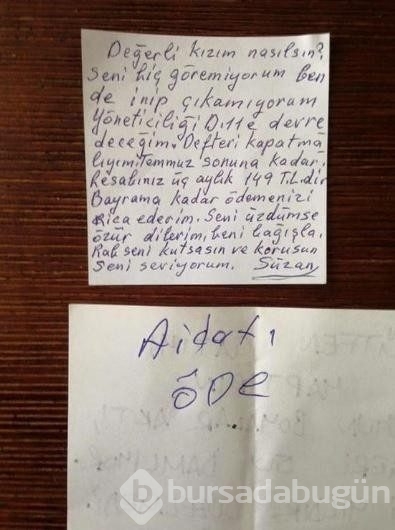 Değerli kızım nasılsın?
Seni hiç göremiyorum ben
de inip çıkamıyorum
Yöneticiliği D.11e devre
deceğim. Defteri kapatma
lıyım. Temmuz sonuna kadar.
Hesabınız üç aylık 149 TL.dir
Bayrama kadar ödemenizi
Rica ederim. Seni üzdümse
özür dilerim, beni bağışla,
Rab seni kutsasın ve korusun
Seni seviyorum. Süzan
Aidatı
ÖDE
bursadabugün